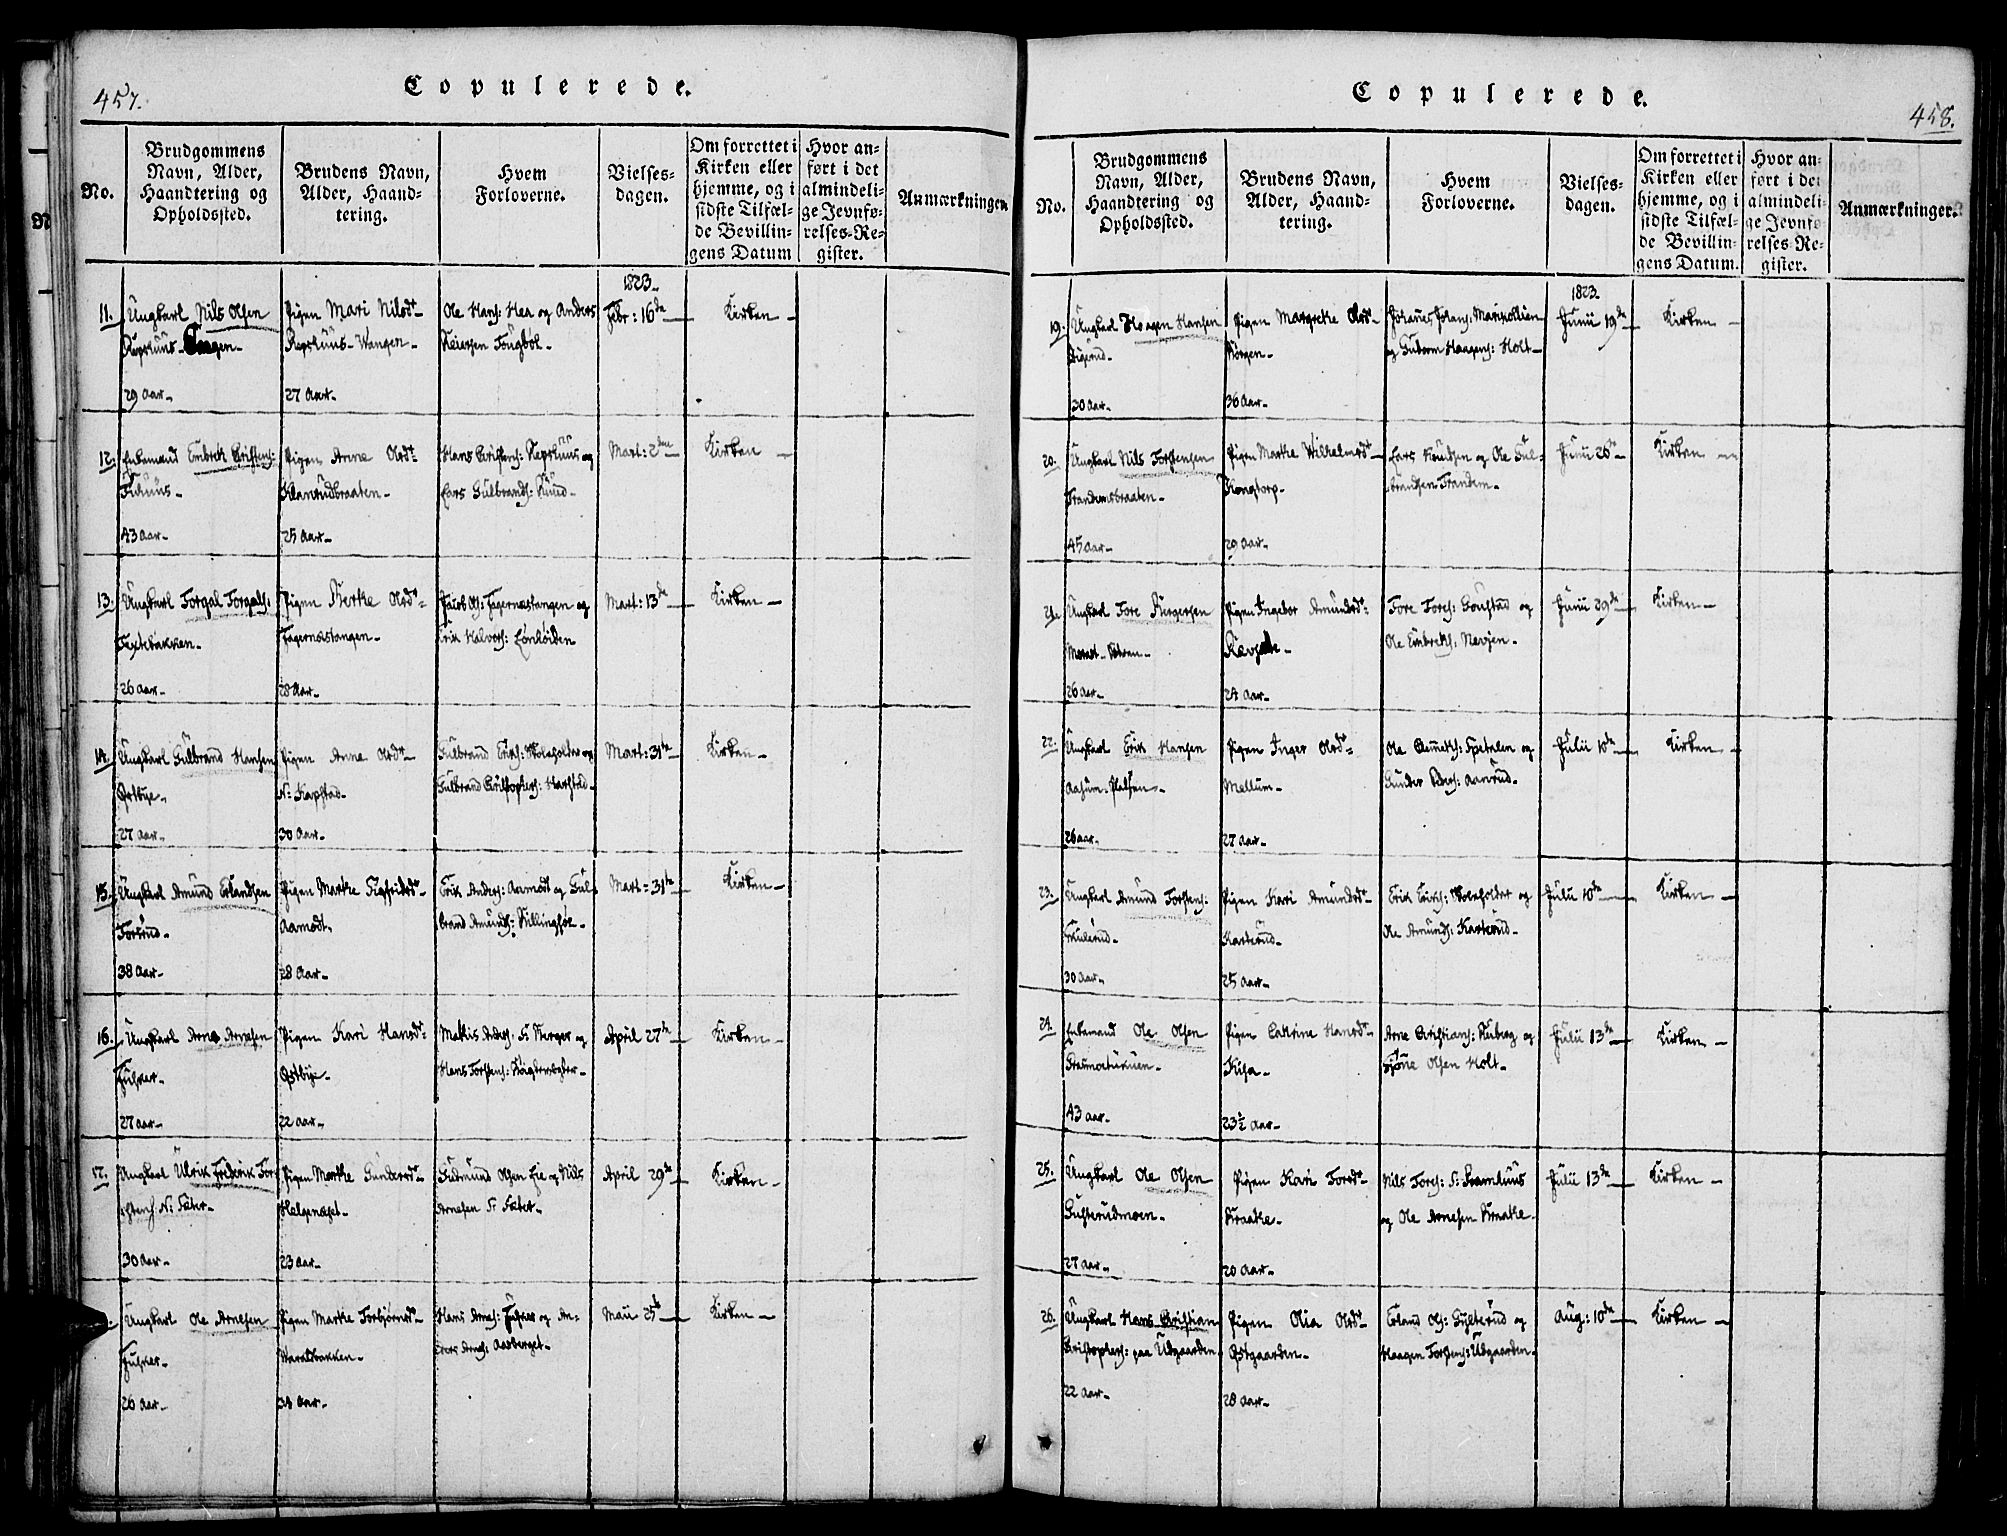 457.
Copulerede.
No.
Brudgommens
Navn, Alder,
Haandtering og
Opholdssted.
Brudens Navn,
Alder, Haand-
tering.
Hvem
Forloverne.
Vielses-
dagen.
Om forrettet i
Kirken eller
hjemme, og i
sidste Tilfæl-
de Bevillin-
gens Datum
Hvor an-
ført i det
almindeli-
ge Jevnfø-
relses-Re-
gister.
Anmærkninger.
1823.
11. Ungkarl Nils Olsen
29 Aar
Pigen Mari Nilsd:
27 Aar
Ole Hans: Hea og Anders
Febr: 16de
Kirken
12. Enkemand Embret Cristens:
43 Aar
Pigen Anne Olsd:
25 Aar
Hans Cristens: og
Lars Gulbrands: Ruud
Mart: 2den
Kirken
13. Ungkarl Torgal Torgals:
26 Aar
Pigen Berthe Olsd:
Fagernæstangen
28 Aar
Jacob Ols: Fagernæstangen og
Erik Halvors:
Mart: 13de
Kirken
14. Ungkarl Gulbrand Hansen
Østbye
27 Aar
Pigen Anne Olsd:
N: Kapstad
30 Aar
Gulbrand Erics: og
Gulbrand Cristophers: Harstad
Mart: 31te
Kirken
15. Ungkarl Amund Erlandsen
38 Aar
Pigen Marthe Sigfridsd:
Aamodt
28 Aar
Erik Anders: Aamodt og Gul-
brand Amunds: Killingstoe
Mart: 31te
Kirken
16. Ungkarl Arne Arnesen
Fulsker
27 Aar
Pigen Kari Hansd:
Østbye
22 Aar
Mathis Anders: S: Berger og
Hans Torstens:
April 27de
Kirken
17. Ungkarl Ulrik Frederik Tor-
stens: N: Sæter
30 Aar
Pigen Marthe Gundersd:
Helgenæset
23 Aar
Gudmund Olsen Eie og Nils
Arnesen S: Sæter
April 29de
Kirken
Ungkarl Ole Arnesen
Fulsker
26 Aar
Pigen Marthe Torbjørnsd:
Haralsbakken
38 Aar
Hans Arnes: Fulsker og An-
ders Arnes: Aasberget
Maii 25de
Kirken
458.
Copulerede.
No.
Brudgommens
Navn, Alder,
Haandtering og
Opholdssted.
Brudens Navn,
Alder, Haand-
tering.
Hvem
Forloverne.
Vielses-
dagen.
Om forrettet i
Kirken eller
hjemme, og i
sidste Tilfæl-
de Bevillin-
gens Datum.
Hvor an-
ført i det
almindeli-
ge Jevnfø-
relses-Re-
gister.
Anmærkninger.
1823.
19. Ungkarl Haagen Hansen
30 Aar
Pigen Margrethe Olsd:
36 Aar
Johannes Johans:
og Guttorm Haagens: Holt
Junii 19de
Kirken
20. Ungkarl Nils Torstensen
Trandemsbraaten
45 Aar
Pigen Marthe Wilhelmsd:
Kongtorp
29 Aar
Lars Knudsen og Ole Gul-
brandsen Trandem
Junii 26de
Kirken
21. Ungkarl Tore Birgersen
26 Aar
Pigen Ingebor Amundsd:
24 Aar
Tore Tores: og
Ole Embrets:
Junii 29de
Kirken
22. Ungkarl Erik Hansen
Aasum-Pladsen
26 Aar
Pigen Inger Olsd:
Mellum
27 Aar
Ole Spetalen og
Gunder Peders: Aanrud
Julii 10de
Kirken
23. Ungkarl Amund Torstens:
Skulerud
30 Aar
Pigen Kari Amundsd:
Karterud
25 Aar
Erik Erics: og
Ole Amunds: Karterud
Julii 10de
Kirken
24. Enkemand Ole Olsen
43 Aar
Pigen Cathrine Hansd:
Kisa
23½ Aar
Arne Cristians: og
Olsen Holt
Julii 13de
Kirken
25. Ungkarl Ole Olsen
Gusterudmoen
27 Aar
Pigen Kari Toresd:
Braathe
20 Aar
Nils Tores: S: Skramhuus
og Ole Arnesen Braathe
Julii 13de
Kirken
26. Ungkarl Hans Cristian
Cristophers: paa Udgaarden
22 Aar
Pigen Olia Olsd:
Østgaarden
28 Aar
Erland Ols: Gylterud og
Haagen Torstens: Udgaarden
Aug: 10de
Kirken